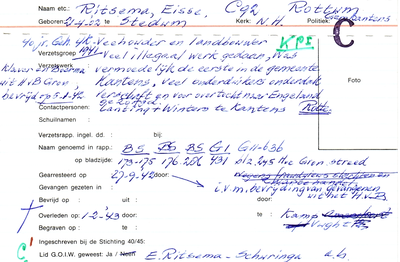 Naam etc.: Ritsema, Eisse, Cg2 Rottum
Geboren: 21-4-02 te Stedum Kerk: N.H. Politiek: Gem. Kantens
40 jr, Geh. 4K Veehouder en landbouwer
KPE C
Verzetsgroep 1941 Veel illegaal werk gedaan, was
Verzetswerk vermoedelijk de eerste in de gemeente
uit HvB Gron Kantens, veel onderduikers onderdak
bevrijd op verschaft en voor overtocht naar Engeland
gezorgd. Foto
Contactpersonen: Lansing + Winters te Kantens Rott.
Schuilnaam:
Verzetsrapp. ingel. dd.: bij:
Naam genoemd in rapp.: BS BS BS G1 G11-636
op bladzijde: 173-175 176 206 431
Gearresteerd op 27-9-42 door:
Gevangen gezeten in: i.v.m. bevrijding van gevangenen
uit het H.v.B.
Bevrijd op: uit door:
Overleden op: 1-2-43 door: te: Kamp
Vught
Begraven op: te:
Ingeschreven bij de Stichting 40/45:
Lid G.O.I.W. geweest: Ja / Neen E. Ritsema-Schuringa a.b.